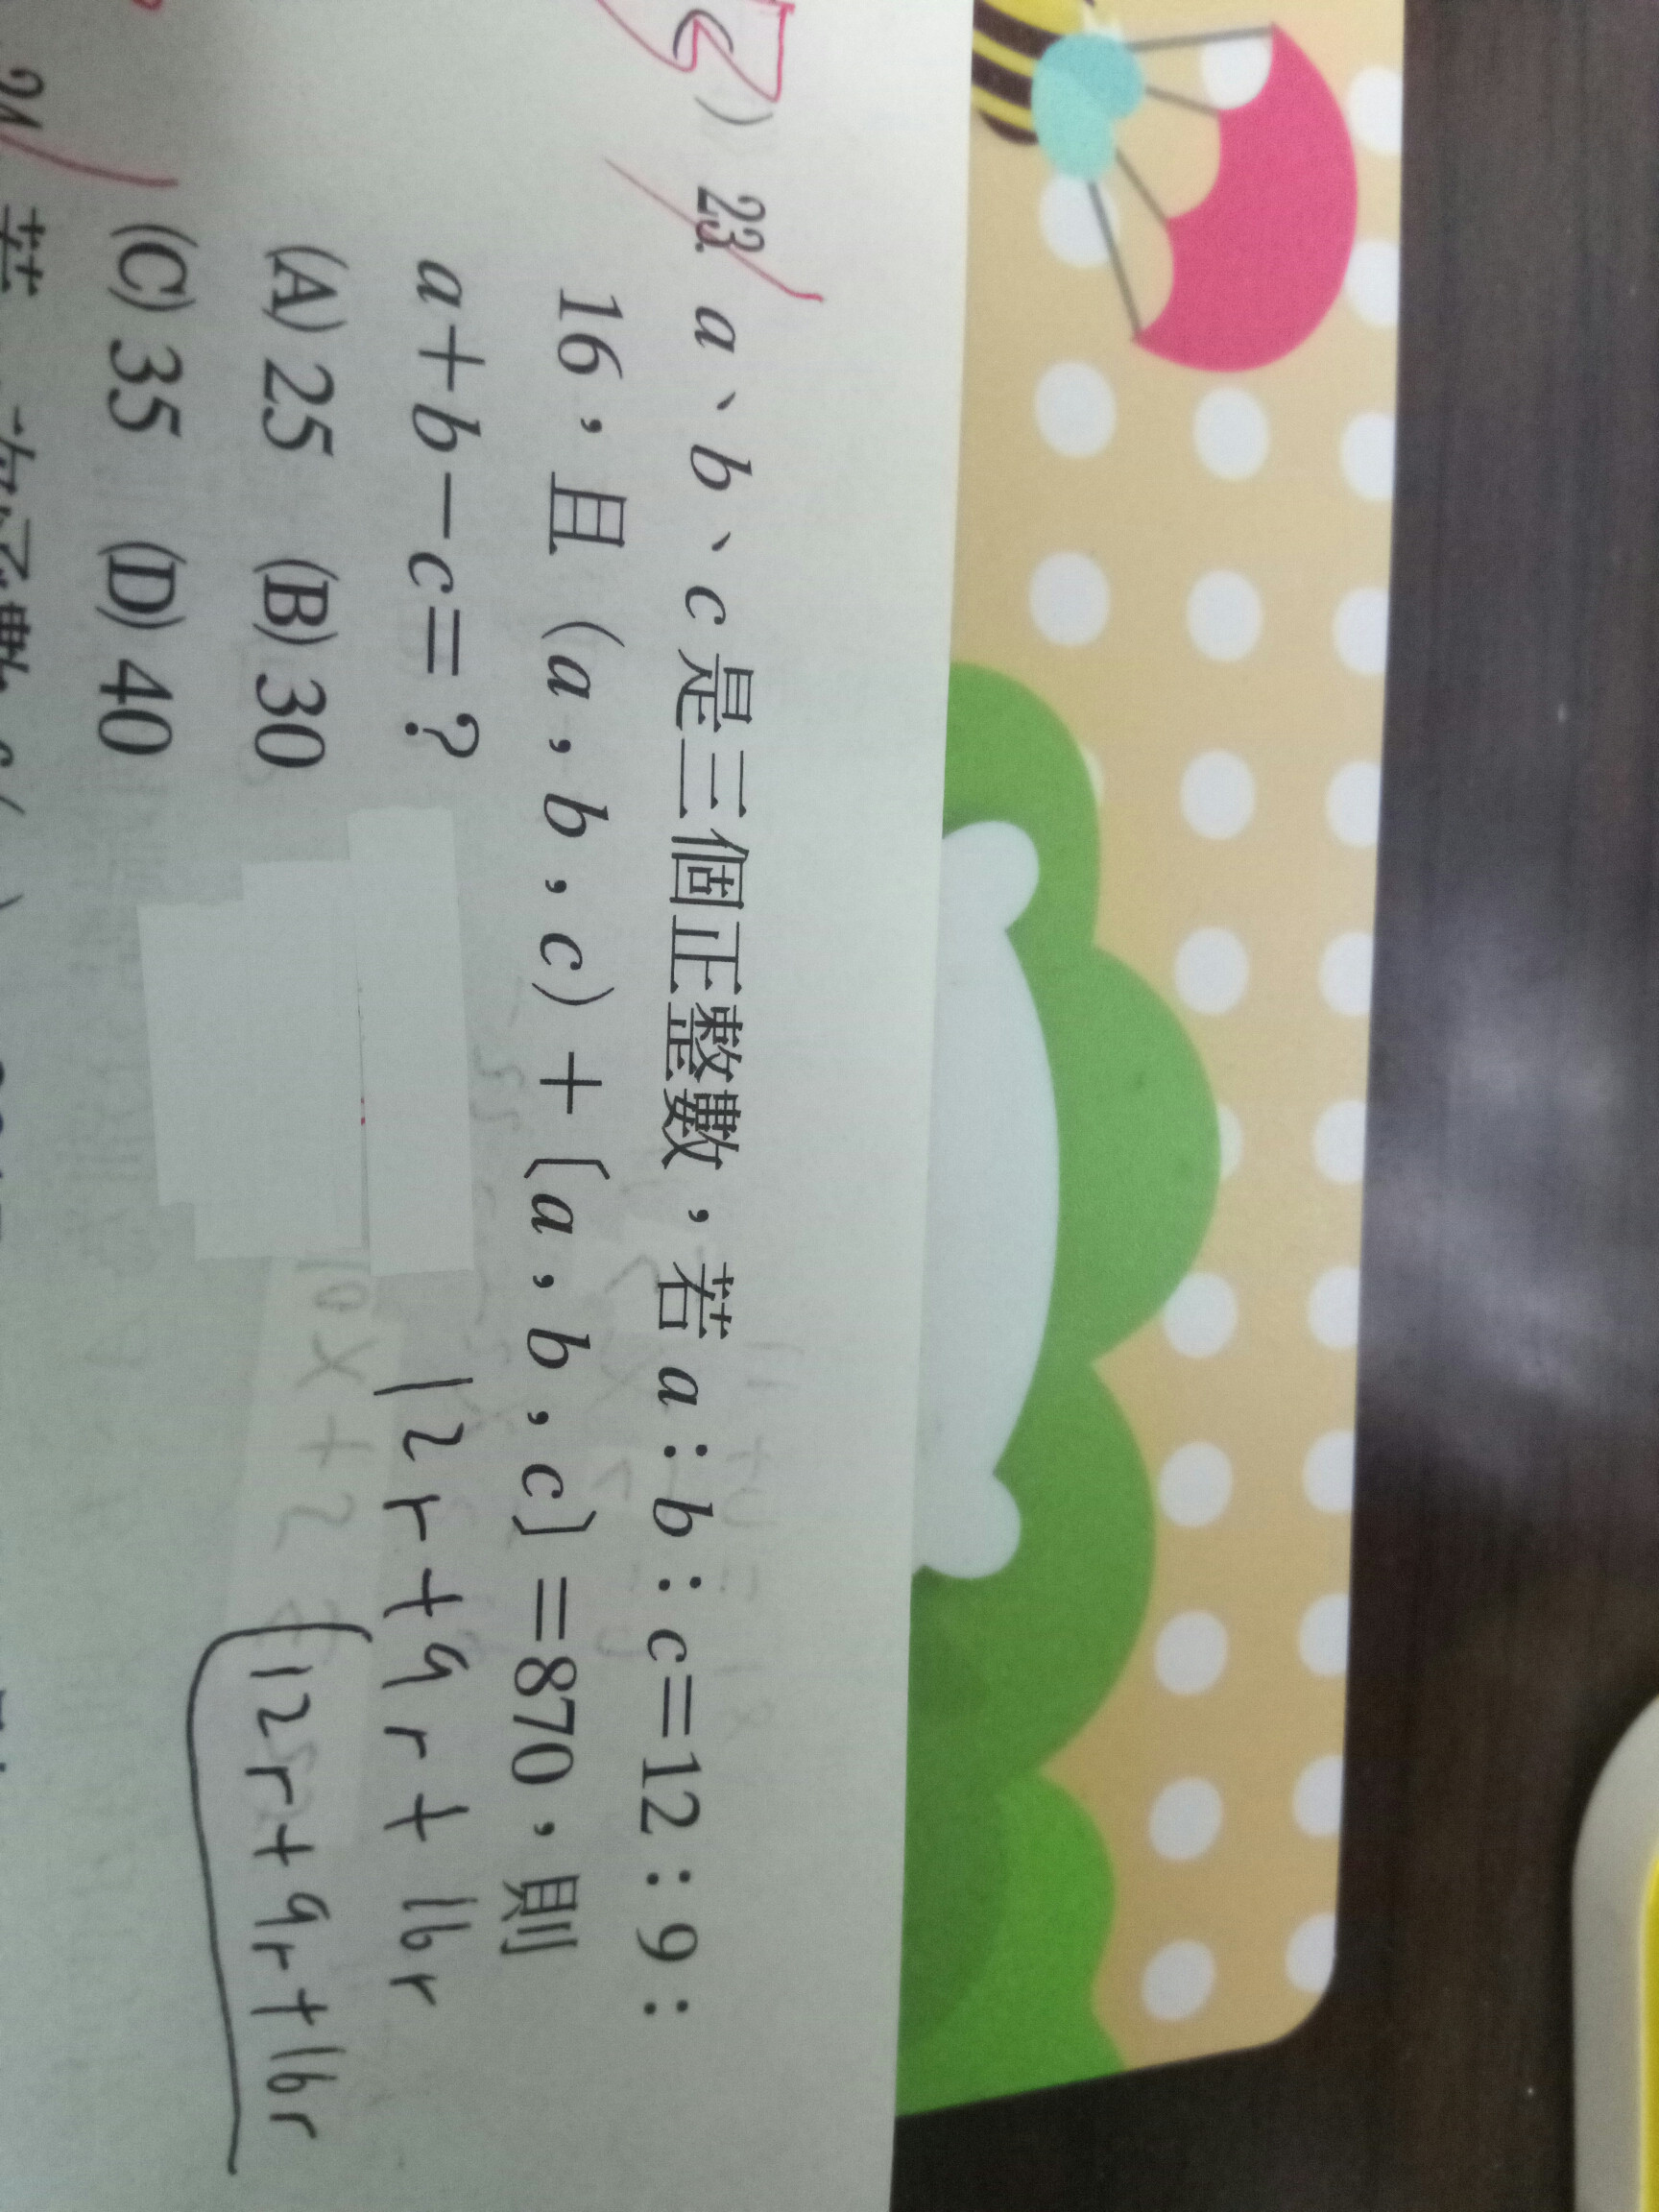 ) 23. a、b、c是三個正整數，若a：b：c=12：9：
16，且（a，b，c）+〔a，b，c〕=870，則
a+b-c=？
(A) 25 (B) 30
(C) 35 (D) 40
12r+9r+16r
12r+9r+16r
10x+2
24
若